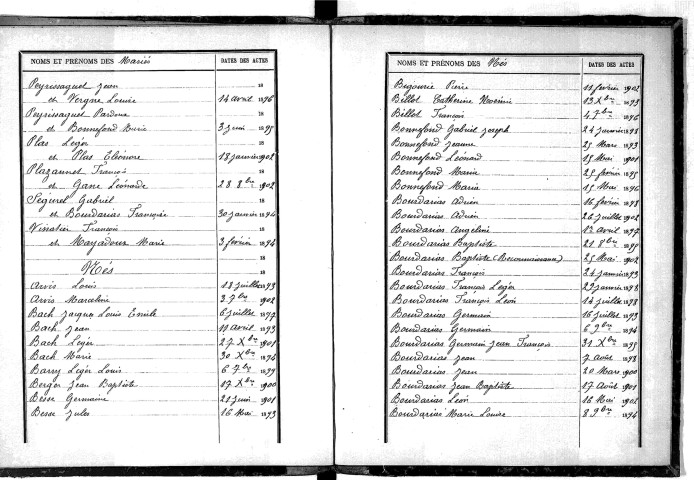 NOMS ET PRÉNOMS DES Mariés DATES DES ACTES
Peyrissaguet Jean 18
et Vergne Louise 14 avril 1896
Peyrissaguet Pardoux 18
et Bonnefond Marie 3 juin 1895
Plas Léger 18
et Plas Eléonore 18 janvier 1902
Plazannet François 18
et Gane Léonarde 28 8bre 1902
Ségurel Gabriel 18
et Bourdarias Françoise 30 janvier 1894
Vinatier François 18
et Mayadoux Marie 3 février 1894
18
Nés 18
Arvis Louis 18 juillet 1893
Arvis Marceline 3 7bre 1902
Bach Jacques Louis Emile 6 juillet 1897
Bach Jean 11 avril 1893
Bach Léger 27 Xbre 1901
Bach Marie 30 Xbre 1894
Barry Léger Louis 6 7bre 1899
Berger Jean Baptiste 17 Xbre 1900
Besse Germaine 21 juin 1901
Besse Jules 16 Mai 1893
NOMS ET PRÉNOMS DES Nés DATES DES ACTES
Begourie Pierre 11 février 1902
Billot Catherine Noémie 13 Xbre 1893
Billot François 4 7bre 1896
Bonnefond Gabriel Joseph 24 janvier 1898
Bonnefond Jeanne 25 Mars 1893
Bonnefond Léonard 15 Mai 1901
Bonnefond Maria 25 février 1895
Bonnefond Maria 15 Mai 1896
Bourdarias Adrien 16 février 1898
Bourdarias Adrien 26 juillet 1902
Bourdarias Angeline 12 avril 1897
Bourdarias Baptiste 21 8bre 1895
Bourdarias Baptiste (Reconnaissance) 25 Mai 1902
Bourdarias François 24 janvier 1893
Bourdarias François Léger 29 janvier 1898
Bourdarias François Léon 14 juillet 1898
Bourdarias Germain 16 juillet 1893
Bourdarias Germain 6 9bre 1894
Bourdarias Germain Jean François 31 Xbre 1895
Bourdarias Jean 7 août 1898
Bourdarias Jean 20 Mars 1900
Bourdarias Jean Baptiste 17 Août 1901
Bourdarias Léon 16 Mai 1902
Bourdarias Marie Louise 8 9bre 1894